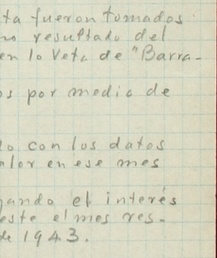 ta fueron tomados
resultado del
en la Veta de "Barra-
os por medio de
do con los datos
alor en ese mes
gando el interés
este el mes res-
de 1943.